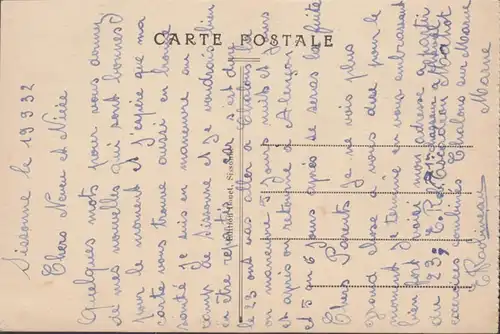 CARTE POSTALE
Sissonne le 19 9 32
Chers Neveu et Nièce
Quelques mots pour vous donner
de mes nouvelles qui sont bonnes
pour le moment et j'espère que ma
carte vous trouve aussi en bonne
santé je suis en manœuvre au
camp de Sissonne et je voudrais bien
en être repartis car s'est dure
le 23 ont vas aller a Chalons
en manœuvre 3 jours nuit et jours
et après on retourne a Alençon
et 5 ou 6 jours après se seras la fuite
Chers Parents je ne vois plus
grand chose a vous dire pour le
moment je termine en vous embrassant
bien fort voici mon adresse a partir
du 23
secours combiné Chalons sur Marne
Marne
Edition Sissonne